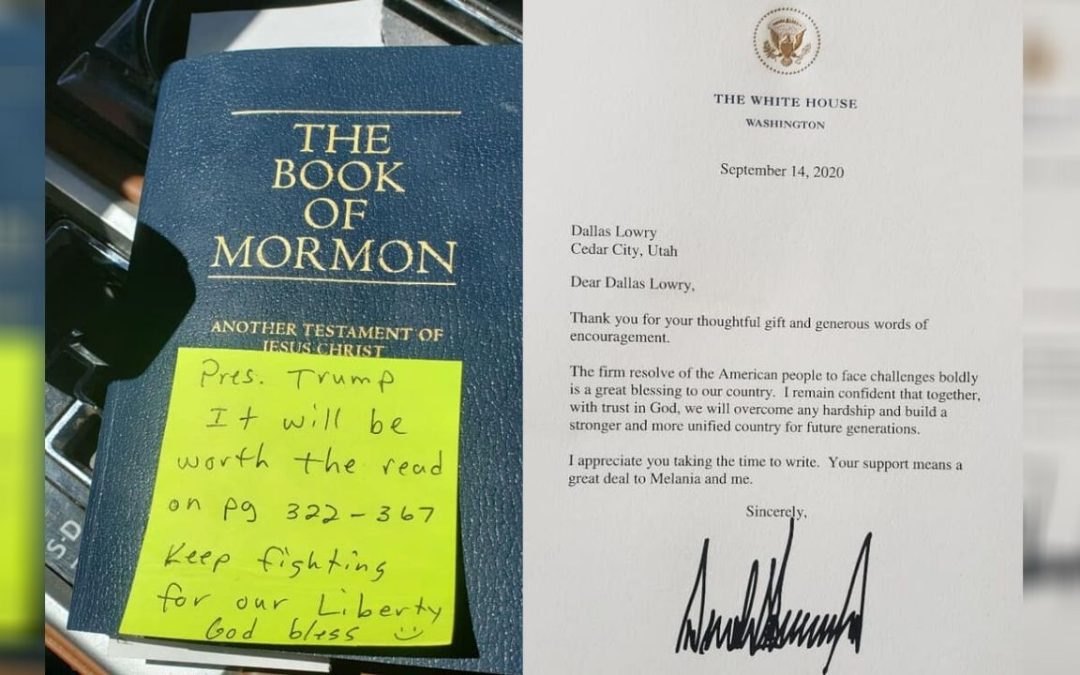 THE
BOOK
OF
MORMON
ANOTHER TESTAMENT OF
JESUS CHRIST
Pres. Trump
It will be
worth the read
on pg 322-367
Keep fighting
for our Liberty
God bless
S-D
THE WHITE HOUSE
WASHINGTON
September 14, 2020
Dallas Lowry
Cedar City, Utah
Dear Dallas Lowry,
Thank you for your thoughtful gift and generous words of
encouragement.
The firm resolve of the American people to face challenges boldly
is a great blessing to our country. I remain confident that together,
with trust in God, we will overcome any hardship and build a
stronger and more unified country for future generations.
I appreciate you taking the time to write. Your support means a
great deal to Melania and me.
Sincerely,